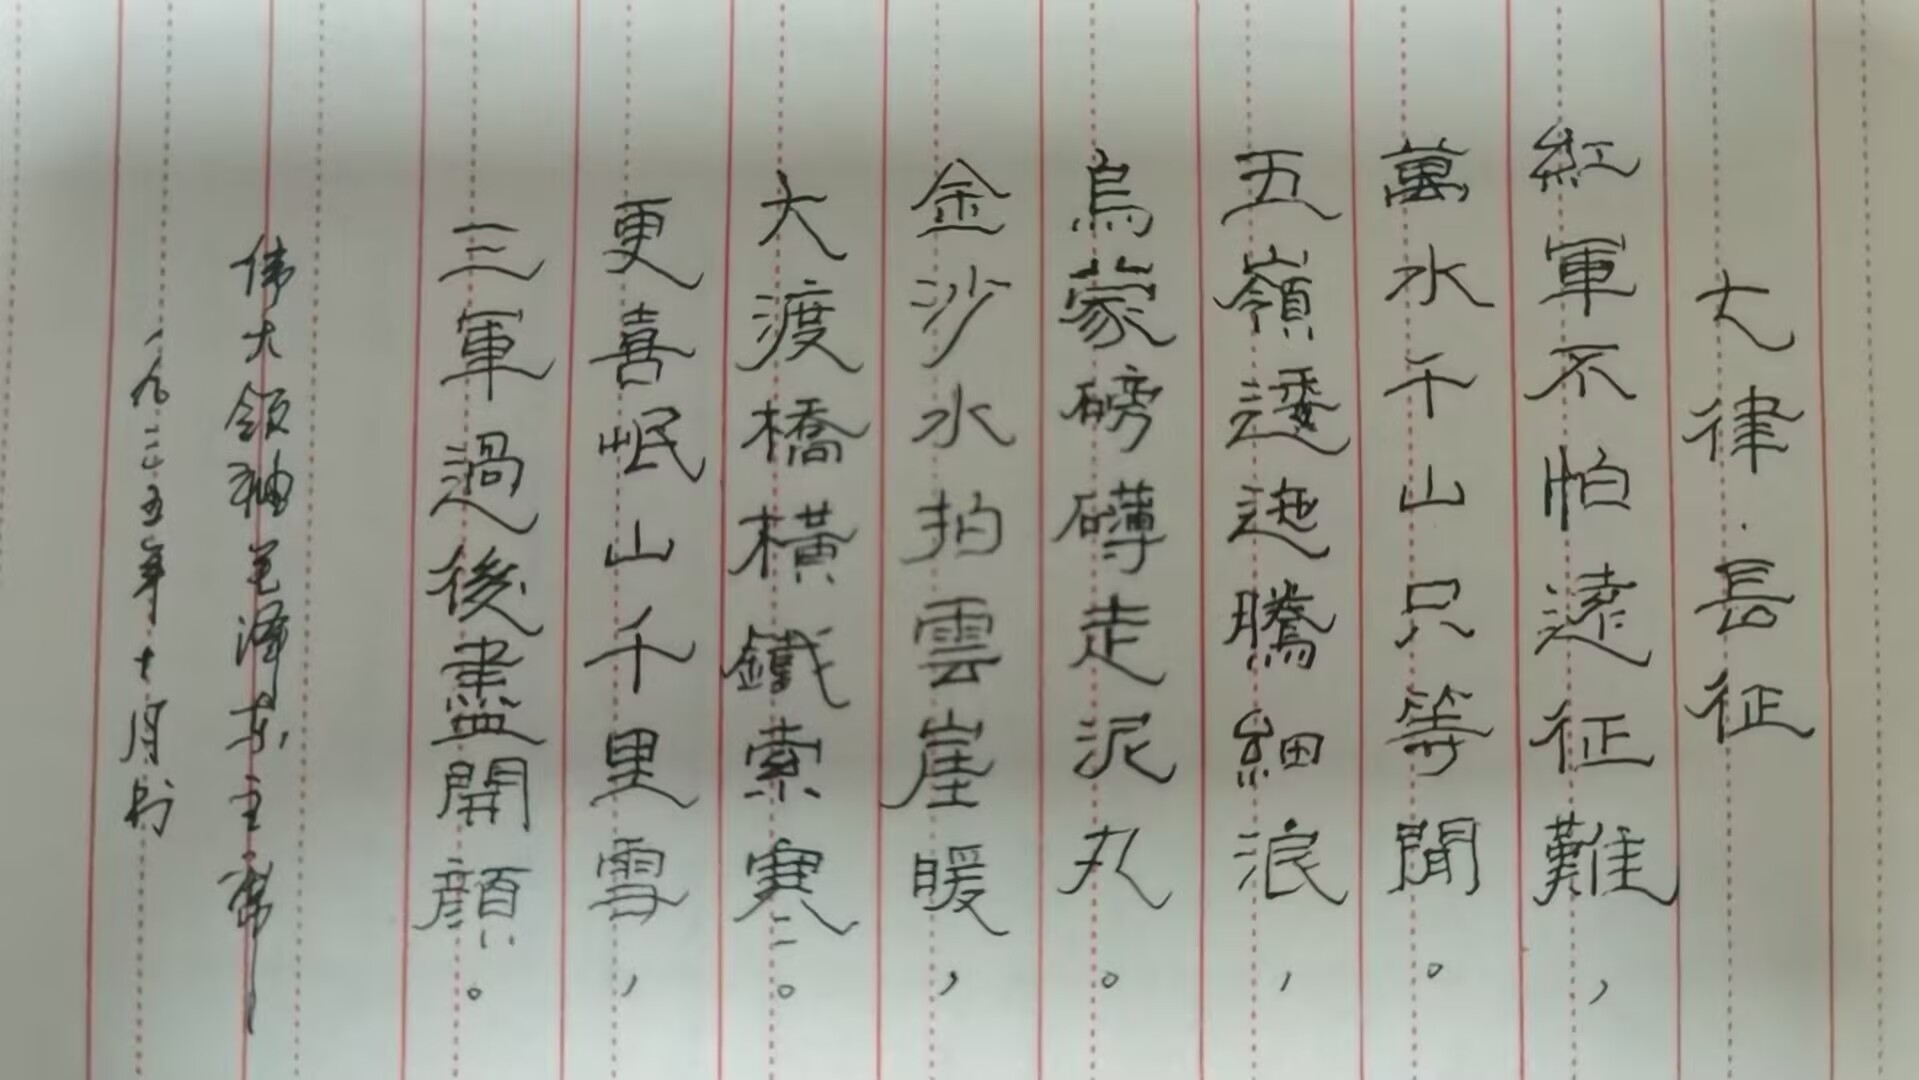 七律·長征
紅軍不怕遠征難，
萬水千山只等閒。
五嶺逶迤騰細浪，
烏蒙磅礴走泥丸。
金沙水拍雲崖暖，
大渡橋橫鐵索寒。
更喜岷山千里雪，
三軍過後盡開顏。
伟大领袖毛泽东主席
一九三五年十月书